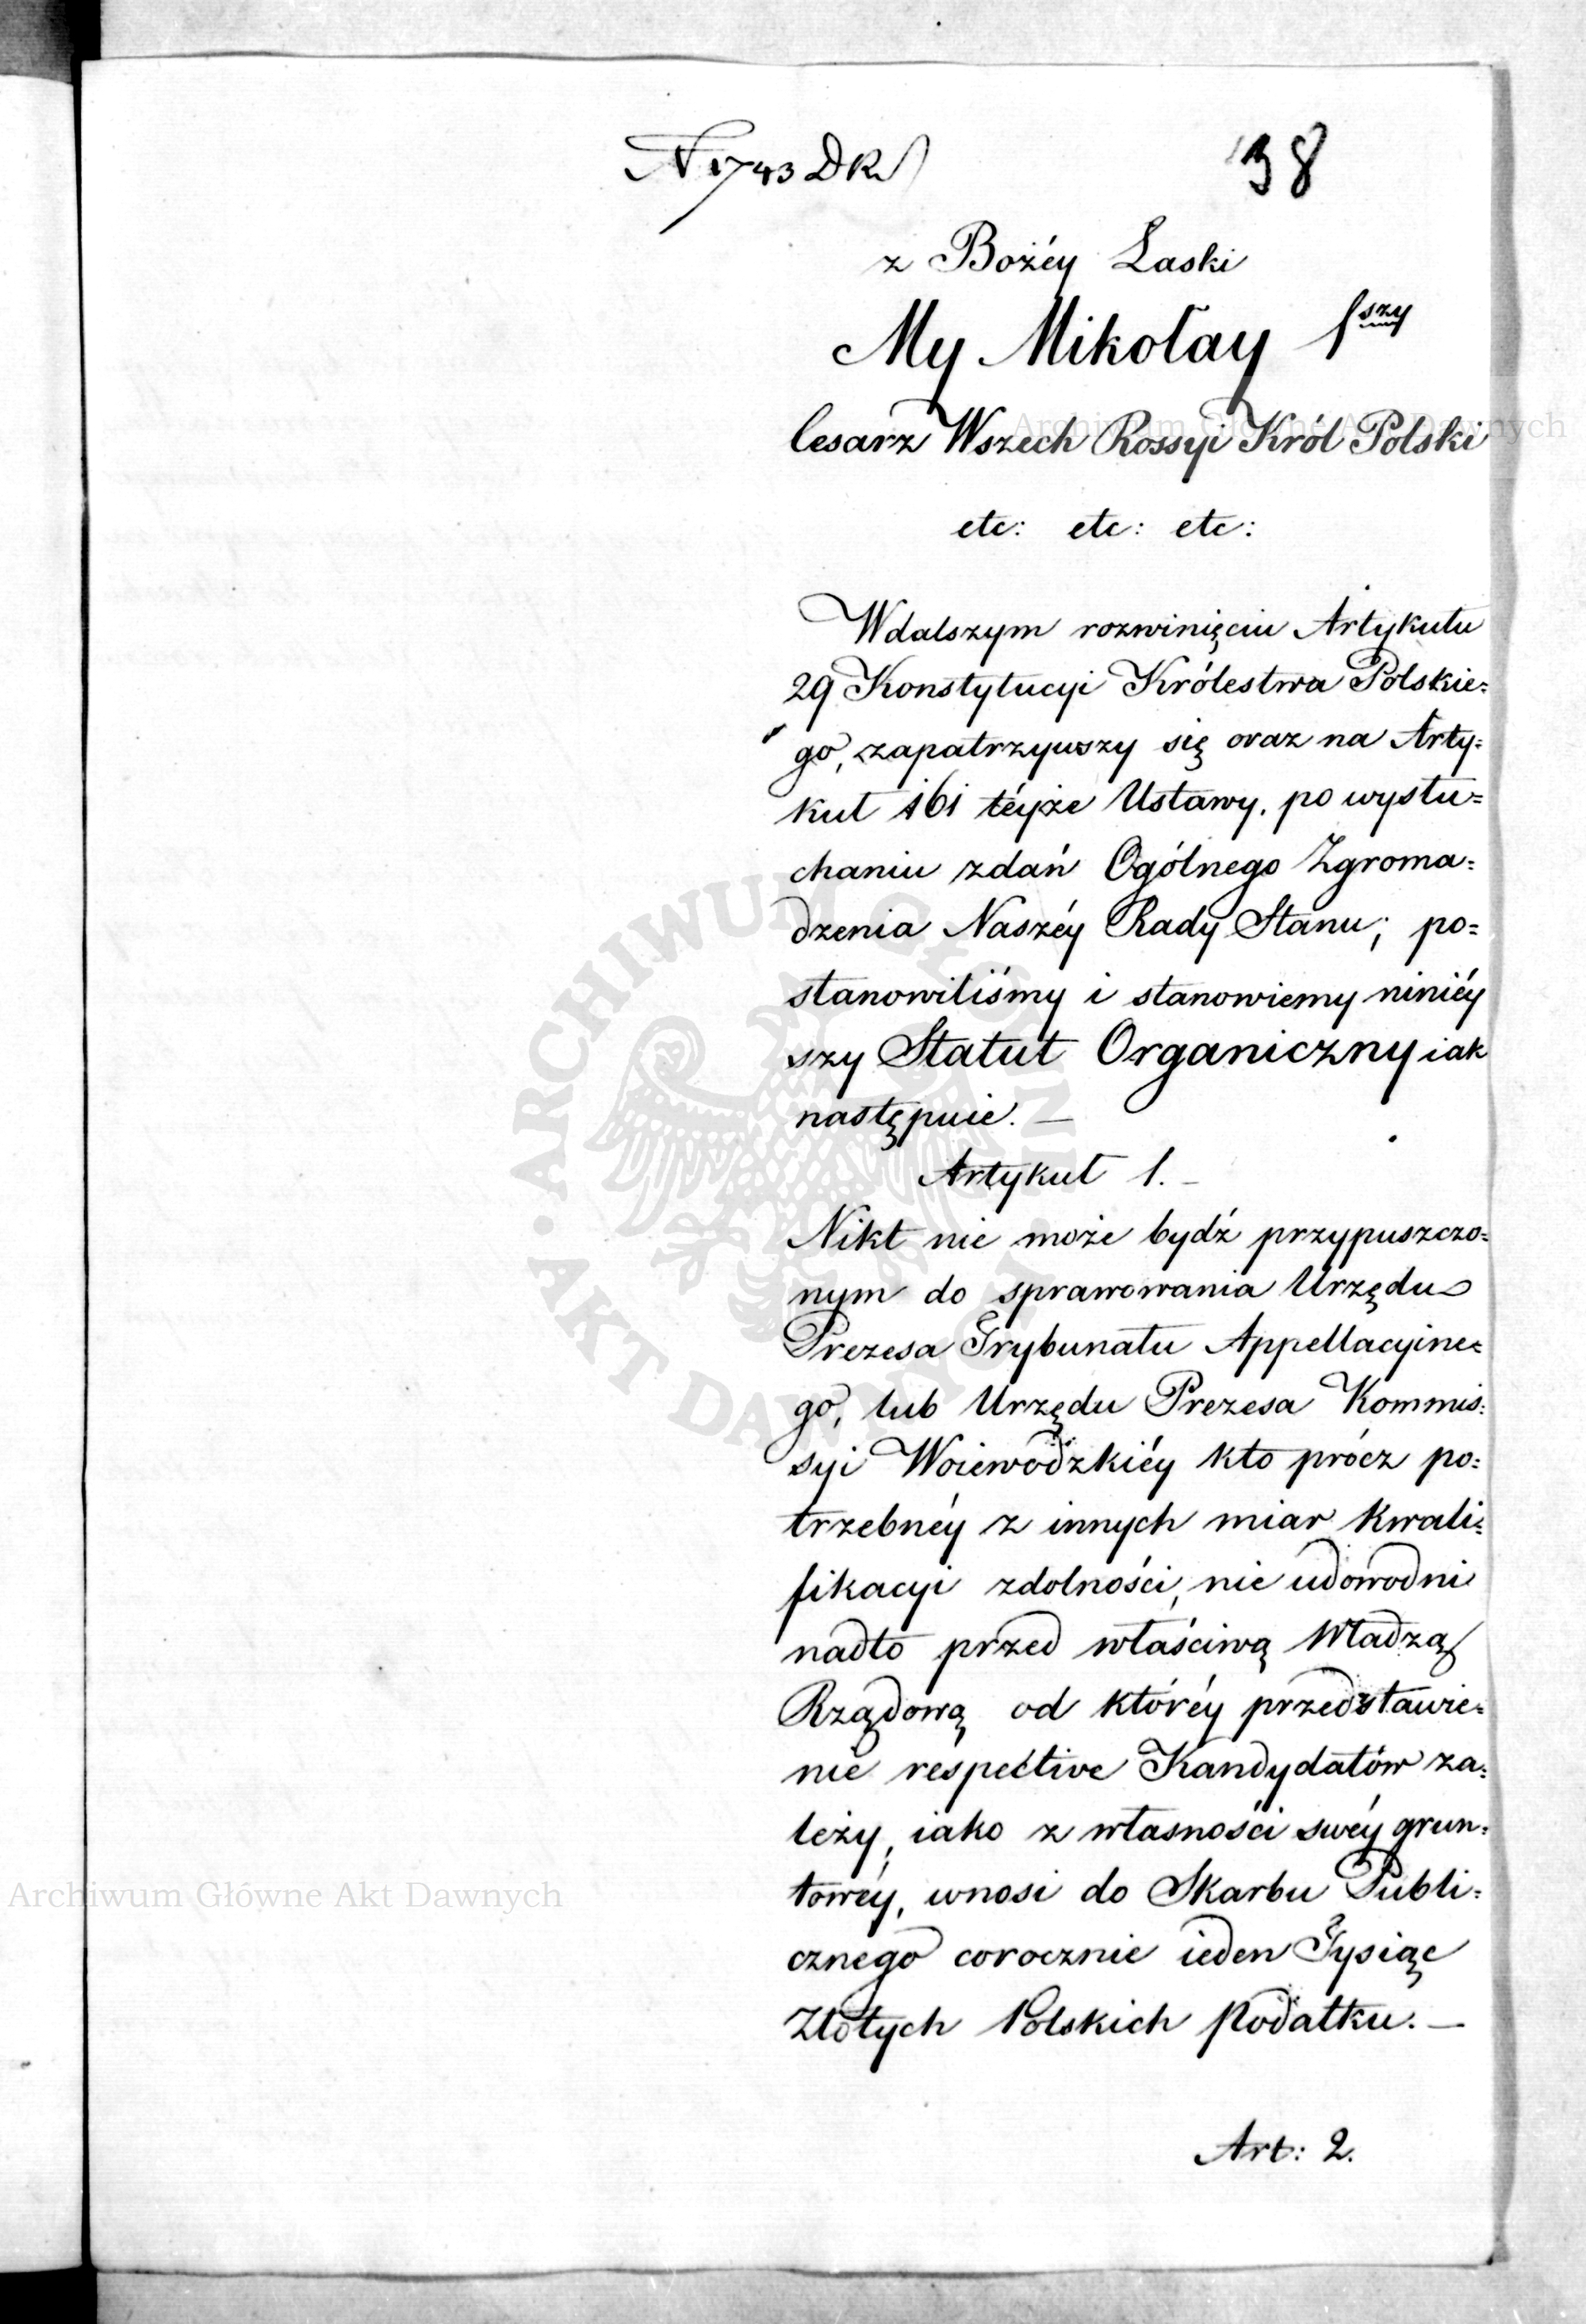 N 1743 DR
38
z Bożéy Łaski
My Mikołay Iszy
Cesarz Wszech Rossyi Król Polski
etc: etc: etc:
W dalszym rozwinięciu Artykułu
29 Konstytucyi Królestwa Polskie=
go, zapatrzywszy się oraz na Arty=
kuł 161 téyże Ustawy, po wysłu=
chaniu zdań Ogólnego Zgroma=
dzenia Naszéy Rady Stanu; po=
stanowiliśmy i stanowiemy ninié́y
szy Statut Organiczny iak
następuie. —
Artykuł 1. –
Nikt nie może bydź przypuszczo=
nym do sprawowania Urzędu
Prezesa Trybunału Appellacyine=
go, lub Urzędu Prezesa Kommis=
syi Woiewódzkiéy kto prócz po=
trzebnéy z innych miar kwali=
fikacyi zdolności, nie udowodni
nadto przed właściwą Władzą
Rządową od któréy przedstawie=
nie respective Kandydatów za=
leży, iako z własności swéy grun=
towéy, wnosi do Skarbu Publi=
cznego corocznie ieden Tysiąc
Złotych Polskich Podatku. —
Art: 2.
Archiwum Główne Akt Dawnych
Archiwum Główne Akt Dawnych
ARCHIWUM GŁÓWNE • AKT DAWNYCH •